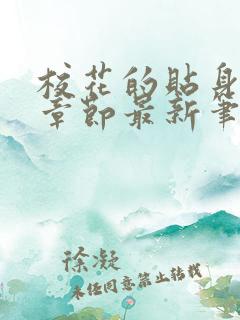 校花的贴身
章节最新筆
徐凝
未经同意禁止转载